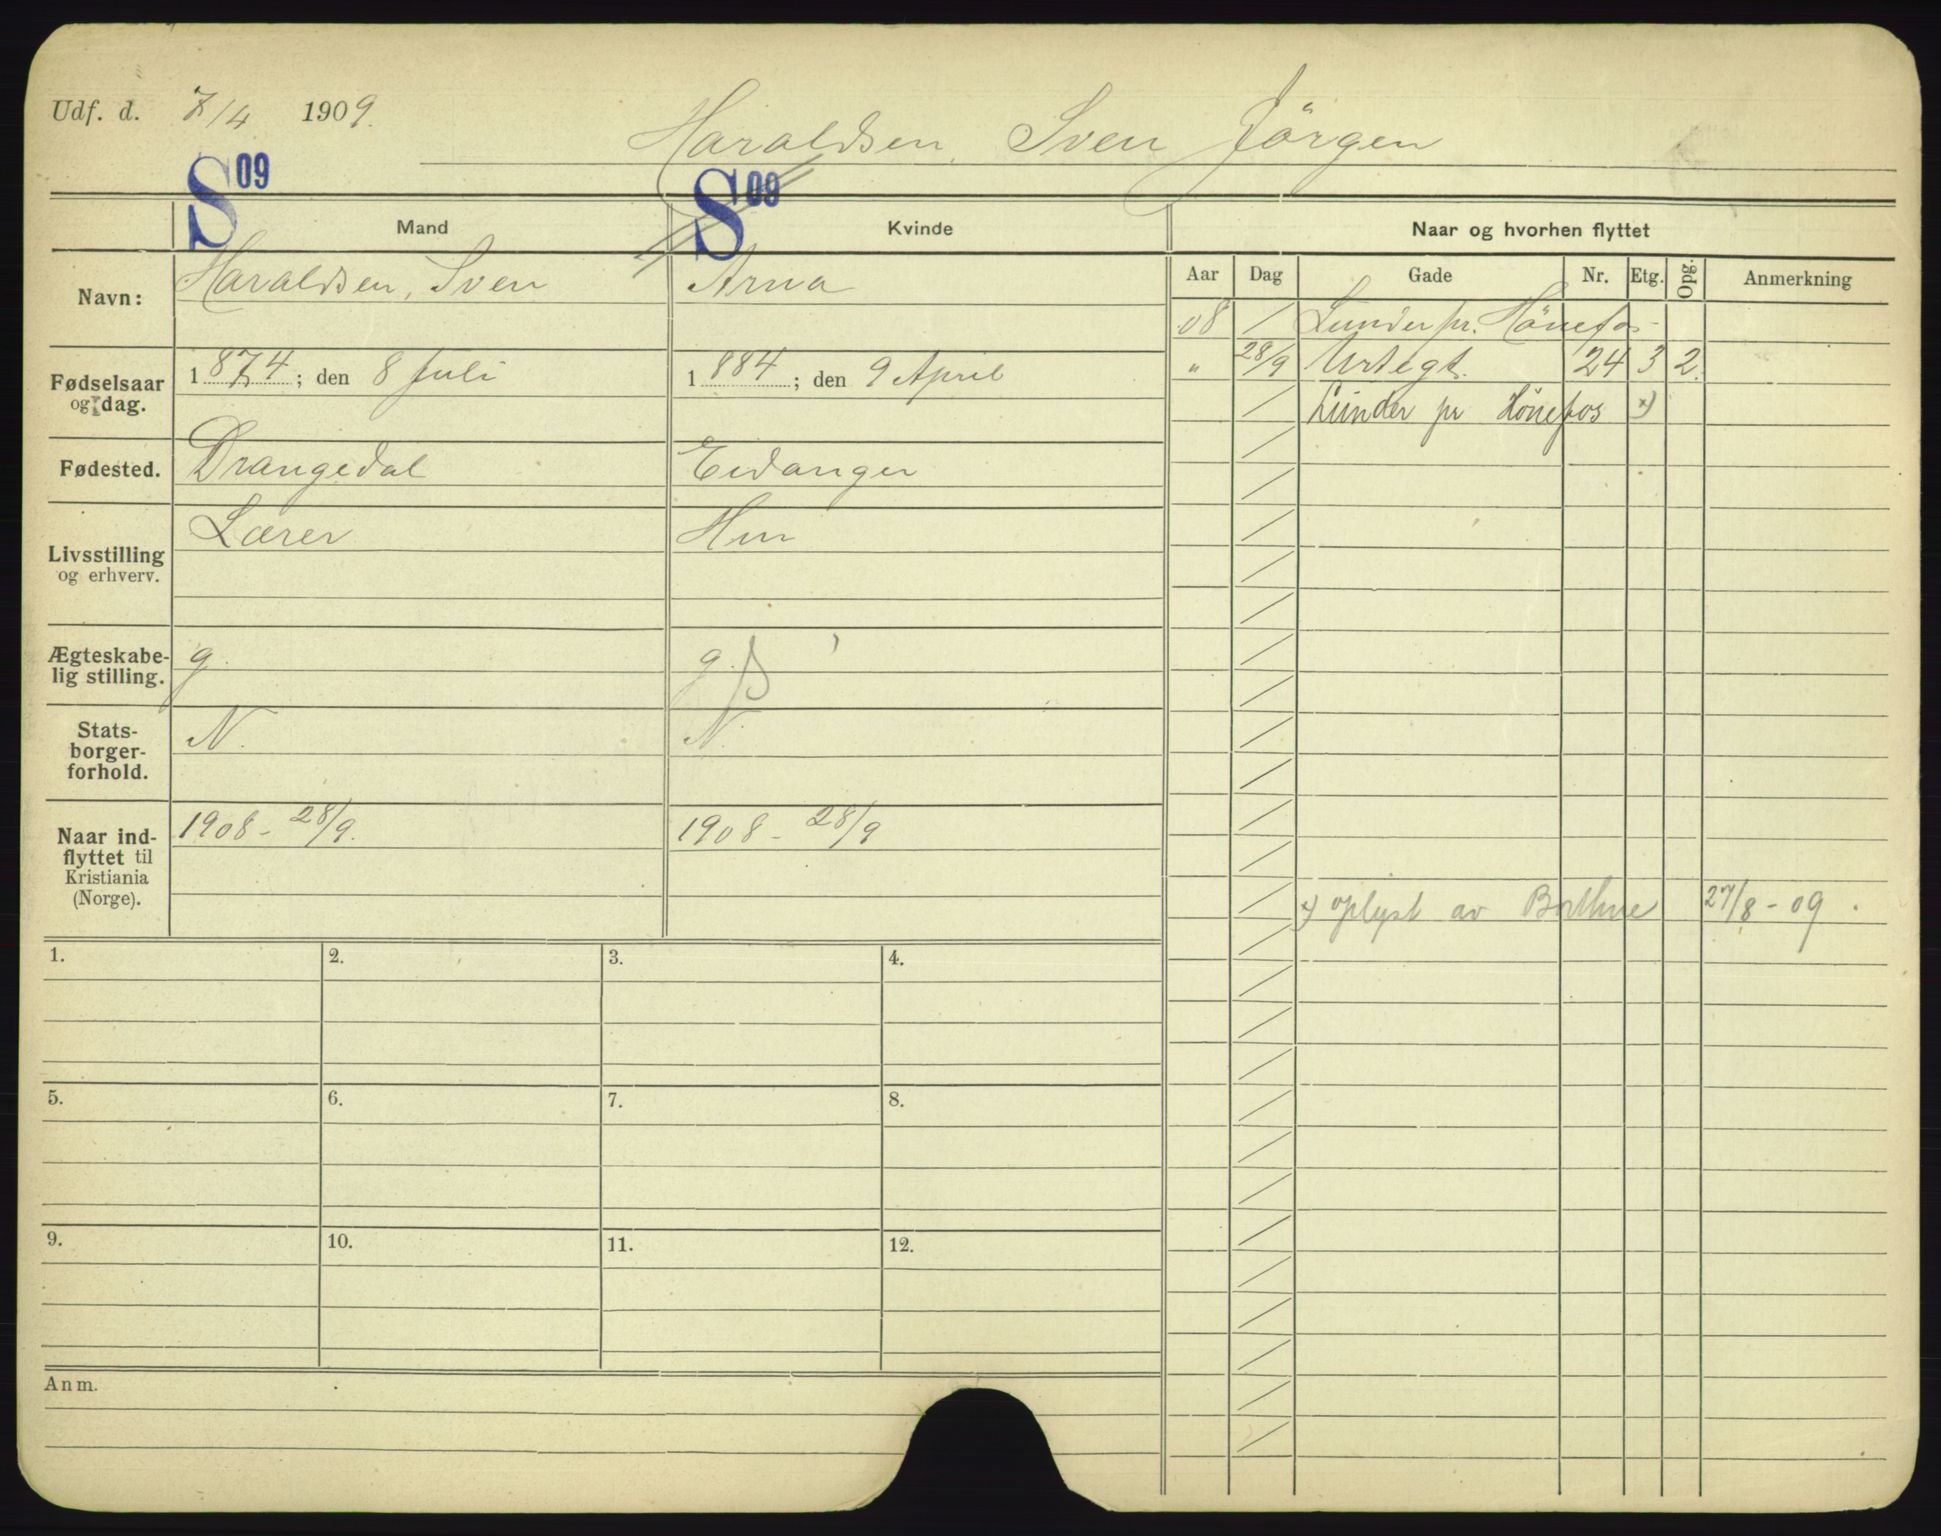 Udf. d. 7/4 1909.
Haraldsen, Sven Jörgen
S 09
S 09
Mand
Kvinde
Naar og hvorhen flyttet
Navn:
Haraldsen, Sven
Arna
Aar
Dag
Gade
Nr.
Etg.
Opg.
Anmerkning
08 / Lunder pr. Hönefos
" 28/9 Urtegt. 24 3 2.
/ Lunder pr Hönefos x)
Fødselsaar og dag.
1874; den 8 Juli
1884; den 9 April
Fødested.
Drangedal
Eidanger
Livsstilling
og erhverv.
Lærer
Hu
Ægteskabe-
lig stilling.
g.
g.
Stats-
borger-
forhold.
N.
N.
Naar ind-
flyttet til
Kristiania
(Norge).
1908 - 28/9.
1908 - 28/9
x) oplyst av 27/8 - 09.
1.
2.
3.
4.
5.
6.
7.
8.
9.
10.
11.
12.
Anm.